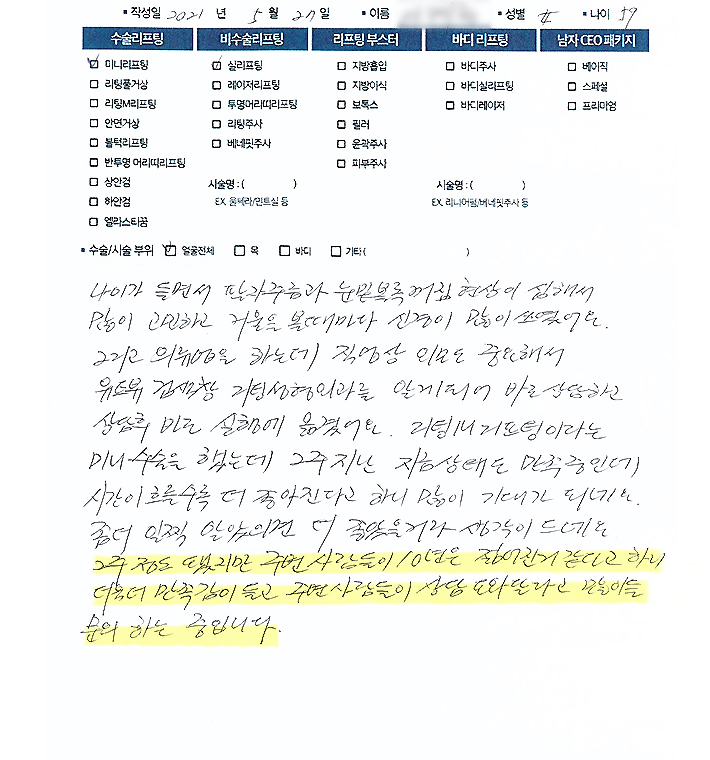 • 작성일 2021 년 5 월 27 일 • 이름 • 성별 • 나이 59
수술리프팅 비수술리프팅 리프팅 부스터 바디 리프팅 남자 CEO 패키지
미니리프팅 실리프팅 지방흡입 바디주사 베이직
리팅풀거상 레이저리프팅 지방이식 바디실리프팅 스페셜
리팅M리프팅 투명머리띠리프팅 보톡스 바디레이저 프리미엄
안면거상 리팅주사 필러
볼턱리프팅 베네핏주사 윤곽주사
반투명 머리띠리프팅 피부주사
상안검 시술명 : ( ) 시술명 : ( )
하안검 EX. 울쎄라/민트실 등 EX. 리니어펌/베네핏주사 등
엘라스티꿈
• 수술/시술 부위 얼굴전체 목 바디 기타 ( )
나이가 들면서 팔자주름과 눈밑볼록꺼짐 현상이 심해서
많이 고민하고 거울을 볼때마다 신경이 많이 쓰였어요.
그리고 의류업을 하는데 직업상 외모도 중요해서
유튜브 검색창 리팅성형외과를 알게되어 바로 상담하고
상담후 바로 실행에 옮겼어요. 리팅M리프팅이라는
미니수술을 했는데 2주 지난 지금상태도 만족중인데
시간이 흐를수록 더 좋아진다고 하니 많이 기대가 되네요.
좀더 일찍 알았으면 더 좋았을거라 생각이 드네요
2주 정도 됐지만 주변 사람들이 10년은 젊어진거 같다고 하니
더욱더 만족감이 들고 주변사람들이 상담 도와달라고 많이들
문의 하는 중입니다.